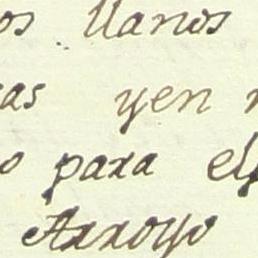 os llanos
as yen
o para el
Arroyo